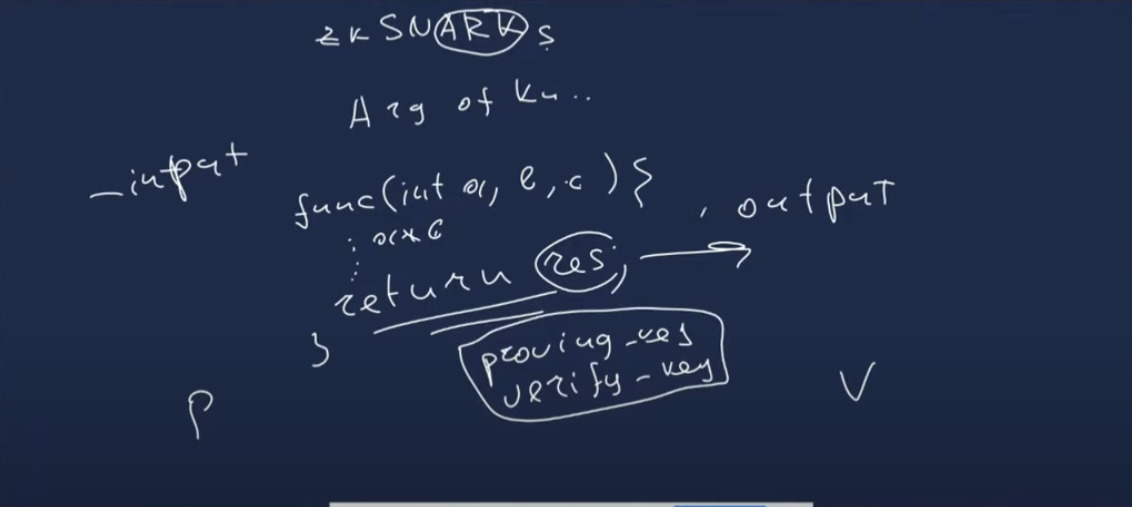 zkSNARKs
Arg of Kn..
_input
func(int a, b, c) {
, output
return res;
}
proving_key
verify-key
P
V